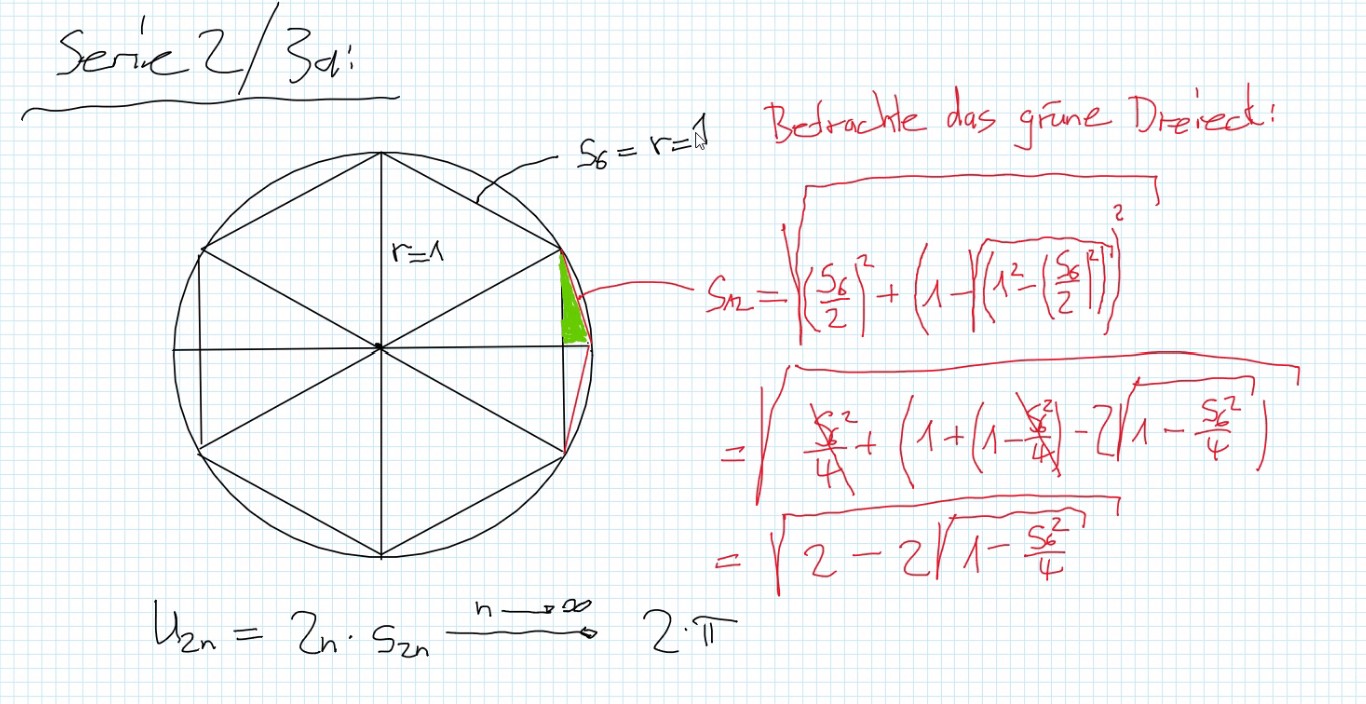 Serie 2/3a:
Betrachte das grüne Dreieck:
S₆ = r = 1
r=1
S₁₂ = √((S₆/2)² + (1 - √(1² - (S₆/2)²))²)
= √(S₆²/4 + (1 + (1 - S₆²/4) - 2√(1 - S₆²/4)))
= √(2 - 2√(1 - S₆²/4))
U₂ₙ = 2n · S₂ₙ n→∞ ⟶ 2·π